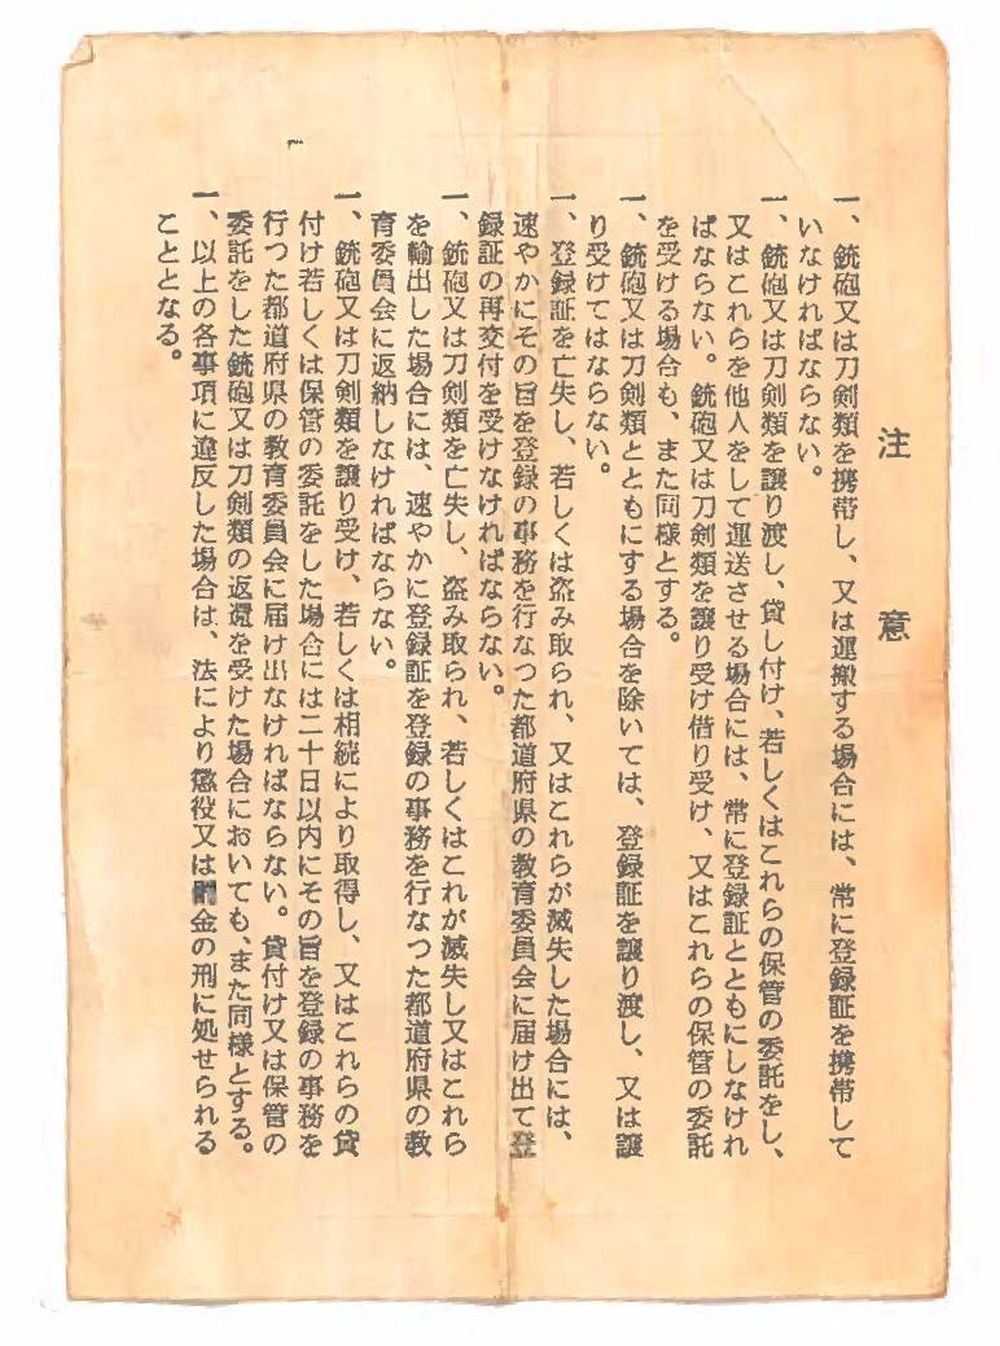 注意
一、銃砲又は刀剣類を携帯し、又は運搬する場合には、常に登録証を携帯して
いなければならない。
一、銃砲又は刀剣類を譲り渡し、貸し付け、若しくはこれらの保管の委託をし、
又はこれらを他人をして運送させる場合には、常に登録証とともにしなけれ
ばならない。銃砲又は刀剣類を譲り受け借り受け、又はこれらの保管の委託
を受ける場合も、また同様とする。
一、銃砲又は刀剣類とともにする場合を除いては、登録証を譲り渡し、又は譲
り受けてはならない。
一、登録証を亡失し、若しくは盗み取られ、又はこれらが滅失した場合には、
速やかにその旨を登録の事務を行なつた都道府県の教育委員会に届け出て登
録証の再交付を受けなければならない。
一、銃砲又は刀剣類を亡失し、盗み取られ、若しくはこれが滅失し又はこれら
を輸出した場合には、速やかに登録証を登録の事務を行なつた都道府県の教
育委員会に返納しなければならない。
一、銃砲又は刀剣類を譲り受け、若しくは相続により取得し、又はこれらの貸
付け若しくは保管の委託をした場合には二十日以内にその旨を登録の事務を
行つた都道府県の教育委員会に届け出なければならない。貸付け又は保管の
委託をした銃砲又は刀剣類の返還を受けた場合においても、また同様とする。
一、以上の各事項に違反した場合は、法により懲役又は罰金の刑に処せられる
こととなる。